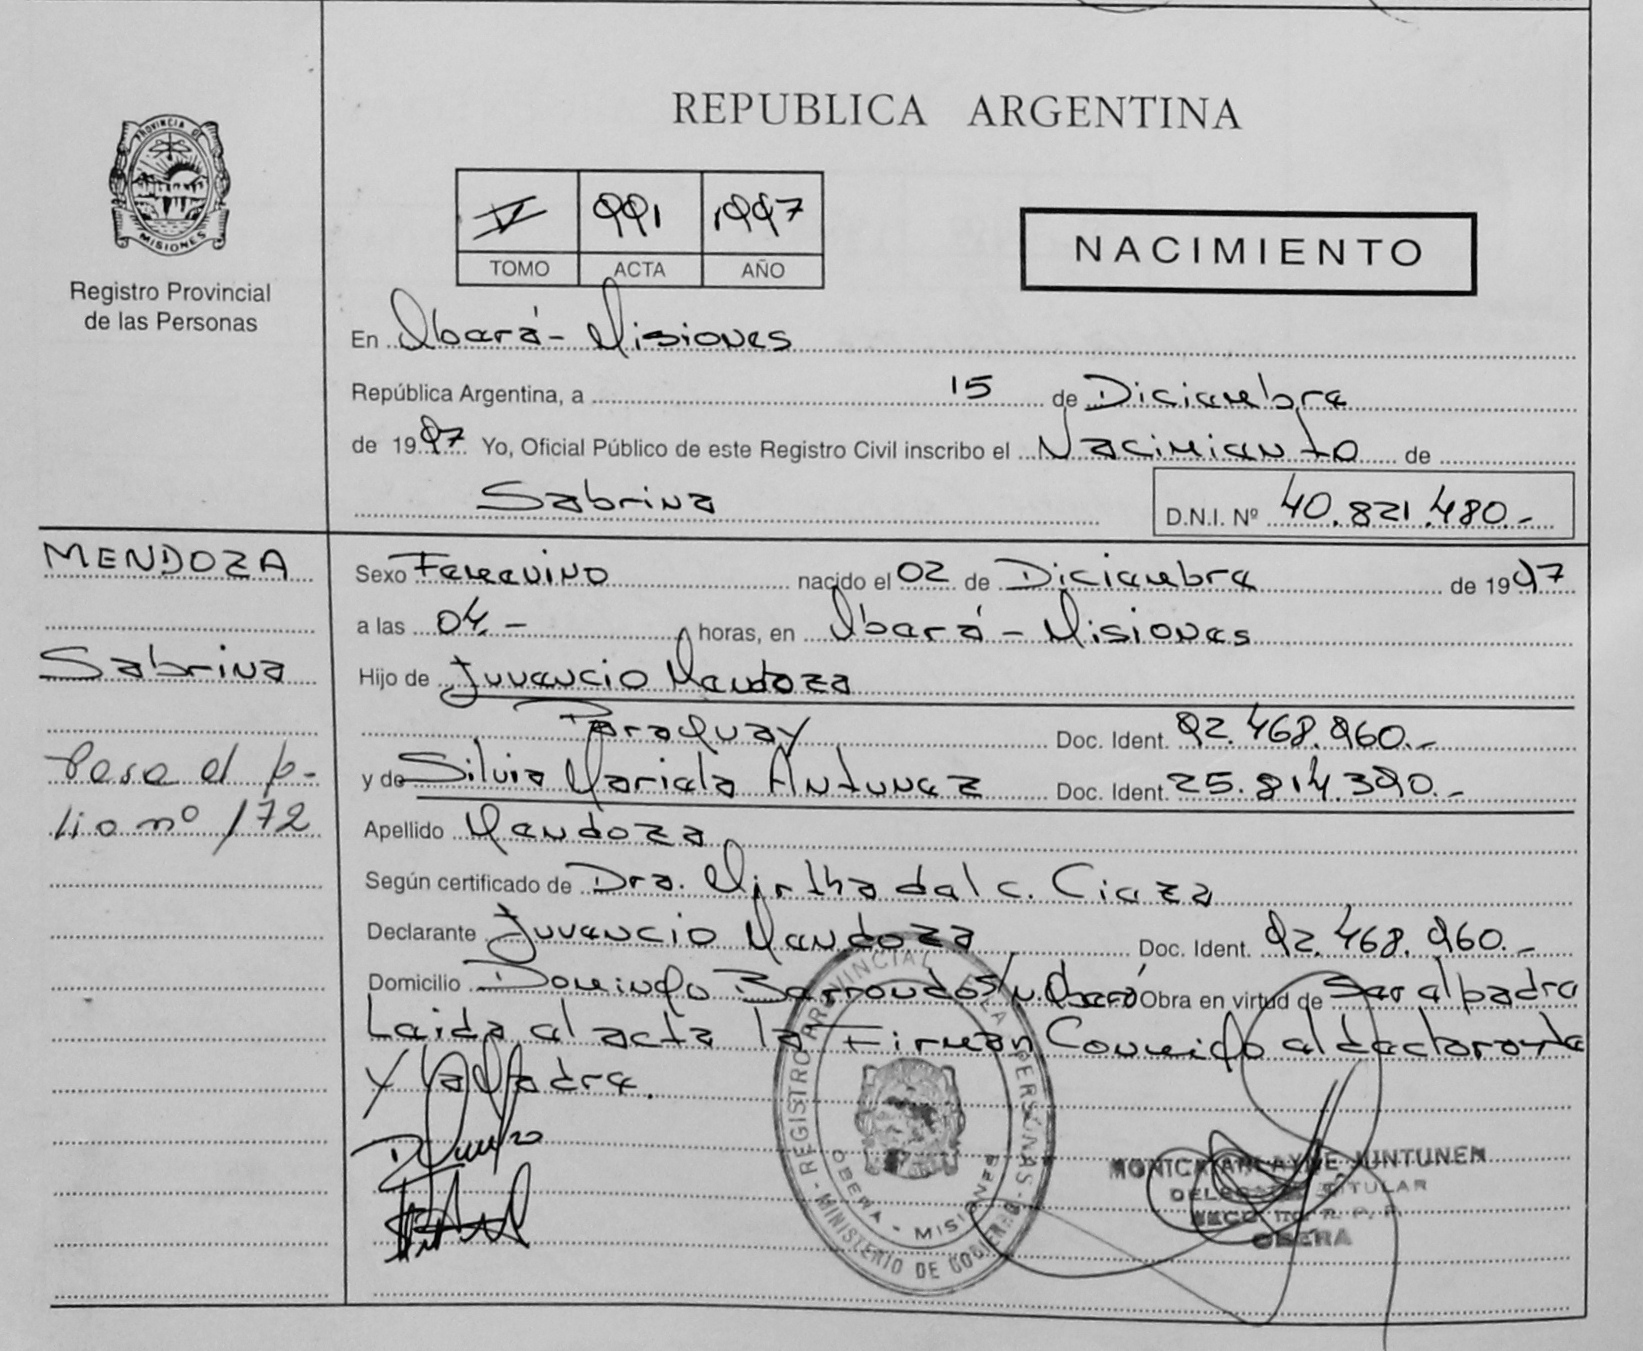 REPUBLICA ARGENTINA
PROVINCIA DE
MISIONES
Registro Provincial
de las Personas
IV 991 1997
TOMO ACTA AÑO
NACIMIENTO
En Oberá - Misiones
República Argentina, a 15 de Diciembre
de 1997 Yo, Oficial Público de este Registro Civil inscribo el Nacimiento de
Sabrina D.N.I. Nº 40.821.480.-
MENDOZA
Sabrina
Pasa al fo-
lio nº 172
Sexo Femenino nacido el 02 de Diciembre de 1997
a las 04.- horas, en Oberá - Misiones
Hijo de Juvencio Mendoza
Paraguay Doc. Ident. 92.468.960.-
y de Silvia Mariela Antunez Doc. Ident. 25.814.390.-
Apellido Mendoza
Según certificado de Dra. Mirtha del C.
Declarante Juvencio Mendoza Doc. Ident. 92.468.960.-
Domicilio Domingo Barrendo S/N. Oberá Obra en virtud de Ser el padre
Leida el acta la Firman Conmigo el declarante
y la Madre.
REGISTRO PROVINCIAL DE LAS PERSONAS - MINISTERIO DE GOBIERNO
OBERA - MISIONES
JUNTUNEN
TITULAR
R. P. P.
OBERA